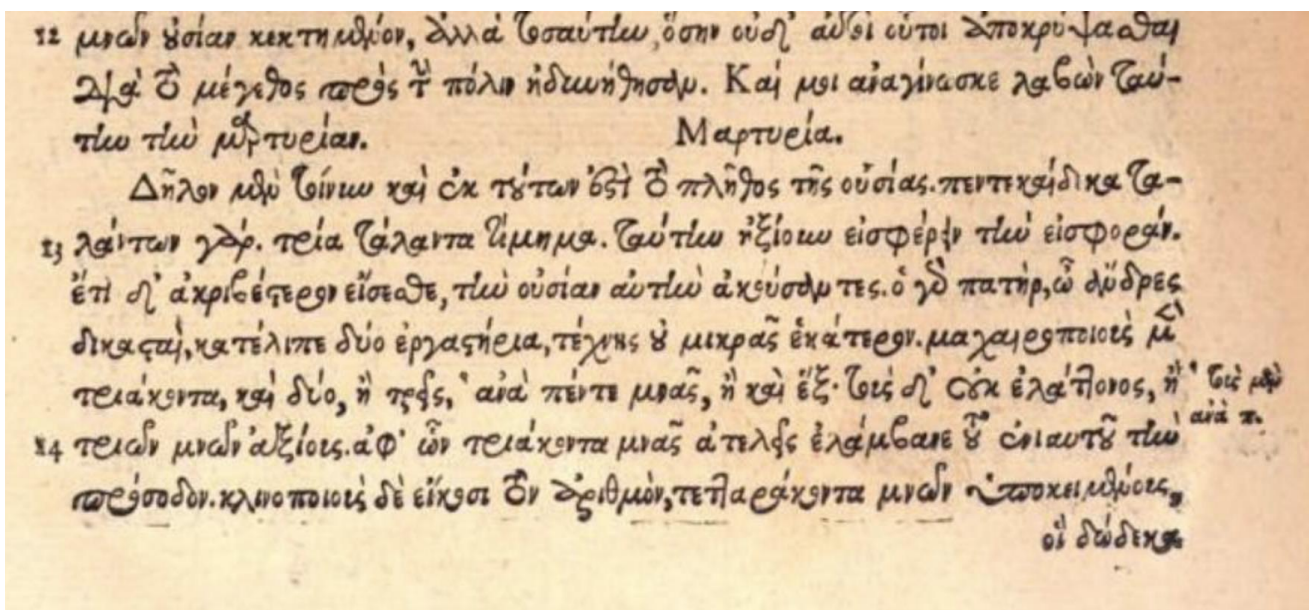 12 μνῶν οὐσίαν κεκτημένον, ἀλλὰ τοσαύτην, ὅσην οὐδ' αὐτοὶ οὗτοι ἀποκρύψασθαι
διὰ τὸ μέγεθος πρὸς τὴν πόλιν ἠδυνήθησαν. Καί μοι ἀναγίνωσκε λαβὼν ταύ-
την τὴν μαρτυρίαν. Μαρτυρία.
Δῆλον μὲν τοίνυν καὶ ἐκ τούτων ἐστὶ τὸ πλῆθος τῆς οὐσίας. πεντεκαίδεκα τα-
13 λάντων γὰρ. τρία τάλαντα τίμημα. ταύτην ἠξίουν εἰσφέρειν τὴν εἰσφοράν.
ἔτι δ' ἀκριβέστερον εἴσεσθε, τὴν οὐσίαν αὐτὴν ἀκούσαντες. ὁ γὰρ πατὴρ, ὦ ἄνδρες
δικασταὶ, κατέλιπε δύο ἐργαστήρια, τέχνης οὐ μικρᾶς ἑκάτερον. μαχαιροποιοὺς μὲν
τριάκοντα, καὶ δύο, ἢ τρεῖς, ἀνὰ πέντε μνᾶς, ἢ καὶ ἕξ· τοὺς δ' οὐκ ἐλάττονος, ἢ
τοὺς μὲν
ἀνὰ π.
14 τριῶν μνῶν ἀξίους. ἀφ' ὧν τριάκοντα μνᾶς ἀτελεῖς ἐλάμβανε τοῦ ἐνιαυτοῦ τὴν
πρόσοδον. κλινοποιοὺς δὲ εἴκοσι τὸν ἀριθμὸν, τετταράκοντα μνῶν ὑποκειμένους,
οἳ δώδεκα